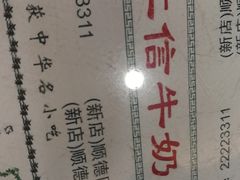 3311
获中华名小吃
(新店)顺德
(新店)顺德
信牛奶
(新店)
22223311